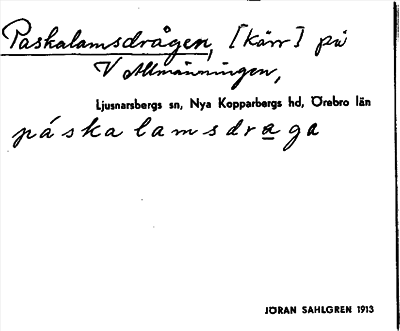 Paskalamsdrågen, [Kärr] på
V Allmänningen,
Ljusnarsbergs sn, Nya Kopparbergs hd, Örebro län
páskalamsdraga
JÖRAN SAHLGREN 1913